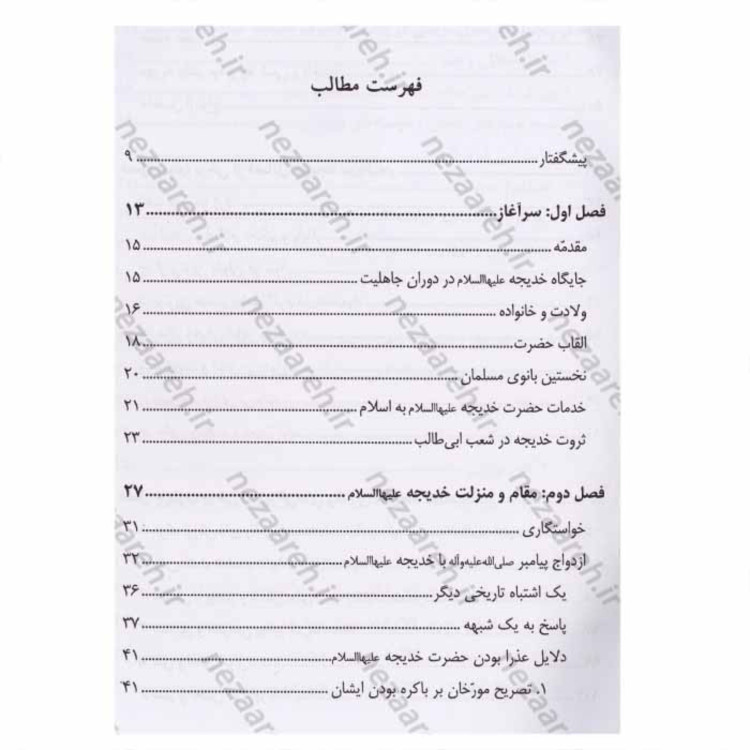 فهرست مطالب
پیشگفتار ... ۹
فصل اول: سرآغاز ... ۱۳
مقدمّه ... ۱۵
جایگاه خدیجه علیهاالسلام در دوران جاهلیت ... ۱۵
ولادت و خانواده ... ۱۶
القاب حضرت ... ۱۸
نخستین بانوی مسلمان ... ۲۰
خدمات حضرت خدیجه علیهاالسلام به اسلام ... ۲۱
ثروت خدیجه در شعب ابی‌طالب ... ۲۳
فصل دوم: مقام و منزلت خدیجه علیهاالسلام ... ۲۷
خواستگاری ... ۳۱
ازدواج پیامبر صلی‌الله‌علیه‌وآله با خدیجه علیهاالسلام ... ۳۲
یک اشتباه تاریخی دیگر ... ۳۶
پاسخ به یک شبهه ... ۳۷
دلایل عذرا بودن حضرت خدیجه علیهاالسلام ... ۴۱
۱. تصریح مورّخان بر باکره بودن ایشان ... ۴۱
nezaareh.ir